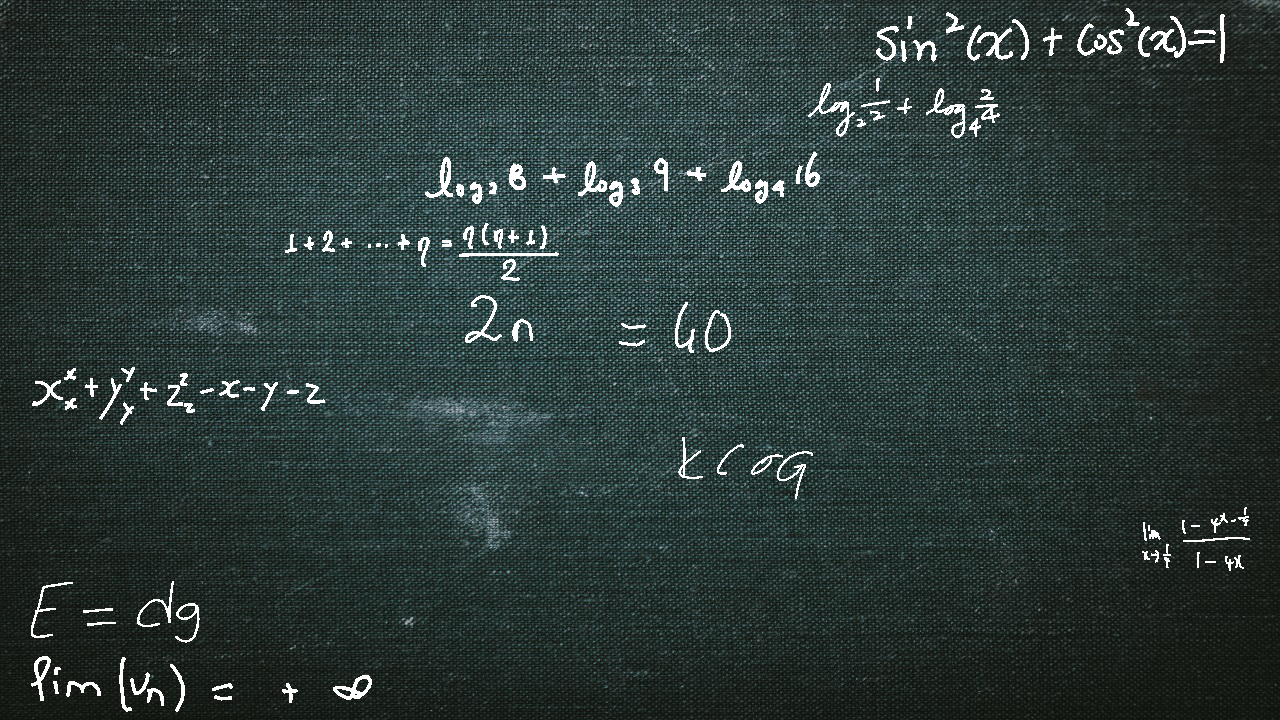 sin²(x) + cos²(x)=1
log₂ 1/2 + log₄ 2/4
log₂ 8 + log₃ 9 + log₄ 16
1+2+ ... + n = n(n+1)/2
2n = 40
xₓˣ + y_y^y + z_z^z - x - y - z
k C o G
lim x→1/4 (1 - 4^x-1/4)/(1 - 4x)
E = dg
lim (Un) = + ∞